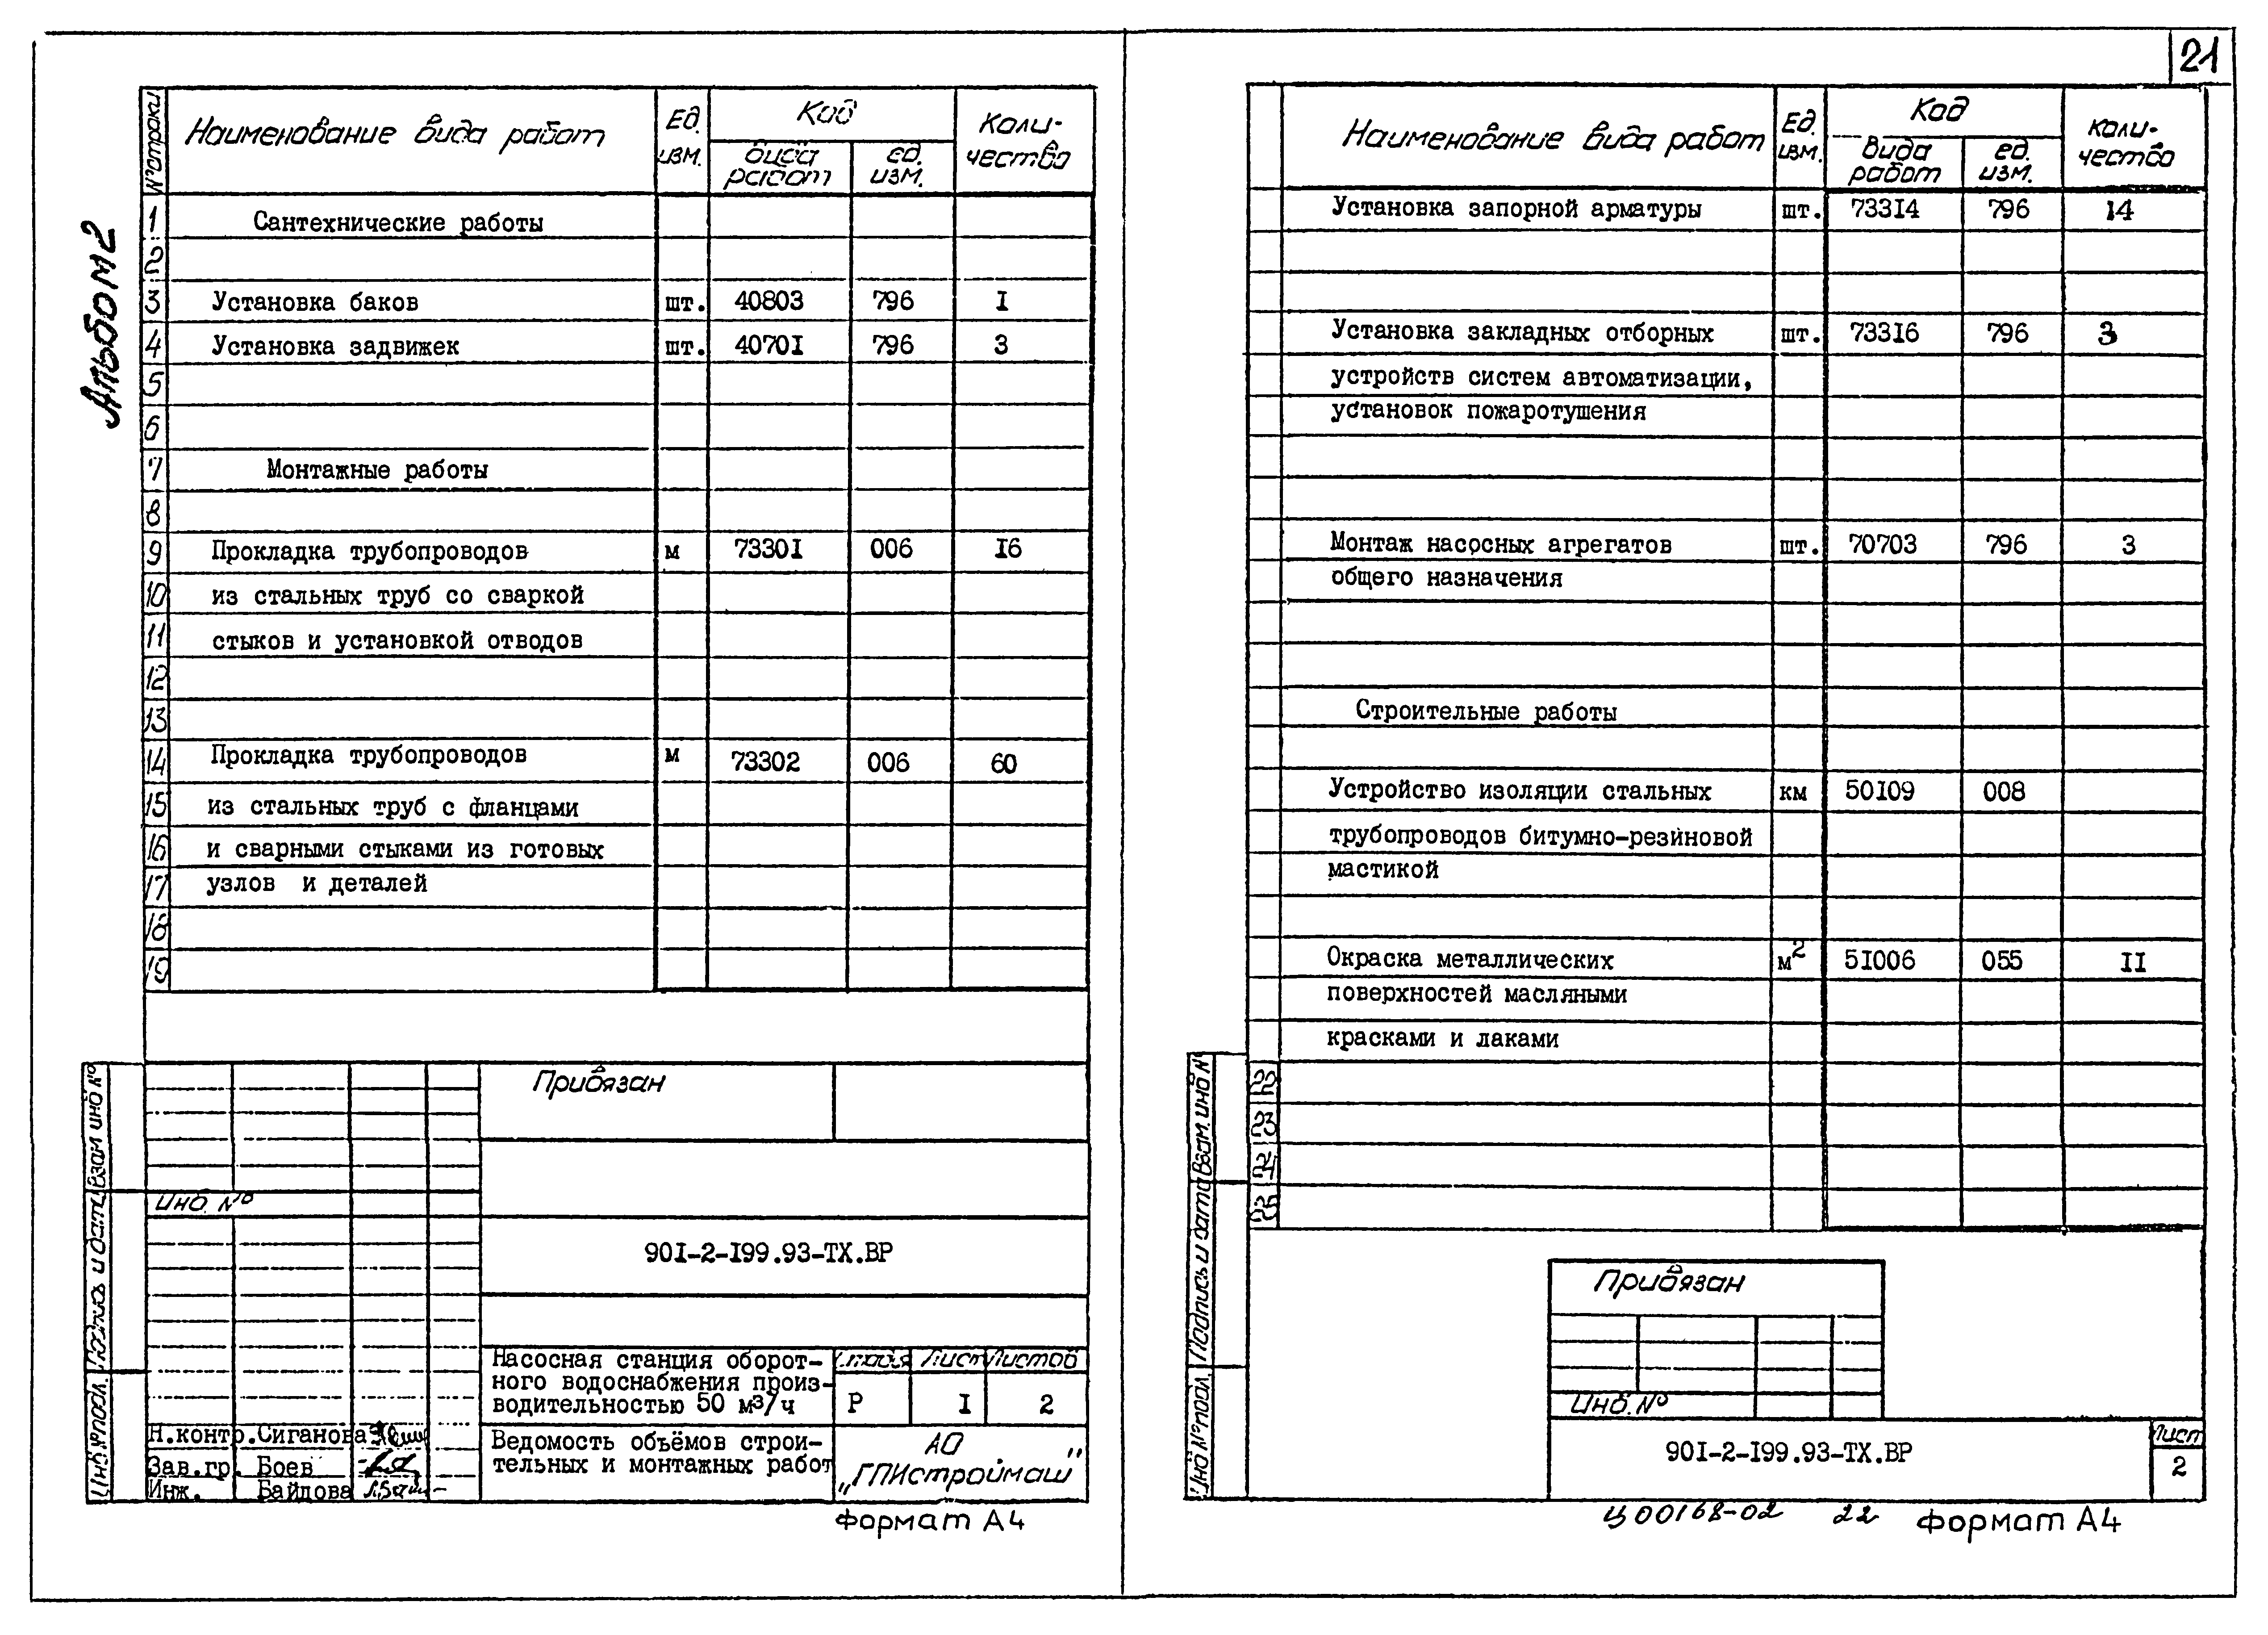 21
Альбом 2
№ строки Наименование вида работ Ед. изм. Код Коли-
вида работ ед. изм. чество
1 Сантехнические работы
2
3 Установка баков шт. 40803 796 I
4 Установка задвижек шт. 4070I 796 3
5
6
7 Монтажные работы
8
9 Прокладка трубопроводов м 7330I 006 I6
10 из стальных труб со сваркой
11 стыков и установкой отводов
12
13
14 Прокладка трубопроводов м 73302 006 60
15 из стальных труб с фланцами
16 и сварными стыками из готовых
17 узлов и деталей
18
19
Привязан
Инв. №
90I-2-I99.93-ТХ.ВР
Насосная станция оборот-
ного водоснабжения произ-
водительностью 50 м³/ч
Стадия Лист Листов
Р I 2
Н.контр. Сиганова
Зав.гр. Боев
Инж. Байдова
Ведомость объёмов строи-
тельных и монтажных работ
АО
„ГПИстроймаш"
Формат А4
Взам инв №
Подпись и дата
Инв № подл.
Наименование вида работ Ед. изм. Код Коли-
вида работ ед. изм. чество
Установка запорной арматуры шт. 733I4 796 I4
Установка закладных отборных шт. 733I6 796 3
устройств систем автоматизации,
установок пожаротушения
Монтаж насосных агрегатов шт. 70703 796 3
общего назначения
Строительные работы
Устройство изоляции стальных км 50I09 008
трубопроводов битумно-резиновой
мастикой
Окраска металлических м² 5I006 055 II
поверхностей масляными
красками и лаками
22
23
24
25
Взам. инв №
Подпись и дата
Инв № подл.
Привязан
Инв. №
90I-2-I99.93-ТХ.ВР
Лист
2
Ц00168-02 22 Формат А4